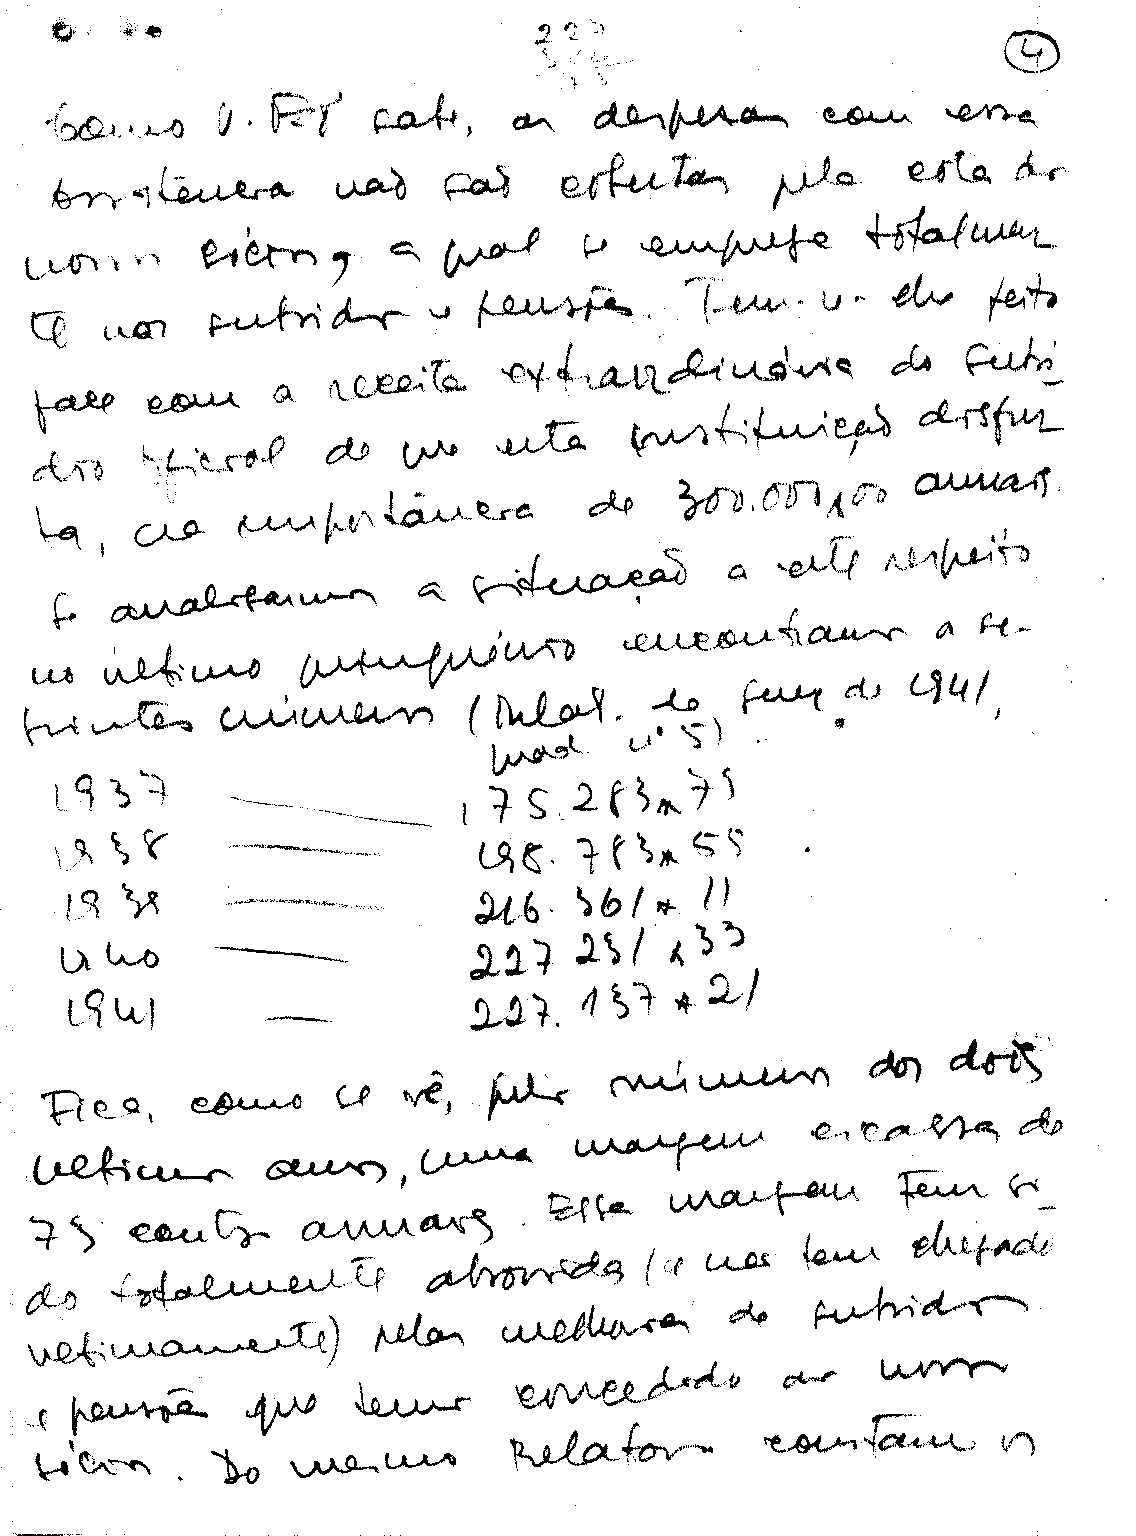 4
Como V. Exª sabe, as despesas com essa
assistência não são cobertas pela cota dos
nossos sócios, a qual se emprega totalmen
te nos subsidios e pensões. Tem-se-lhe feito
face com a receita extraordinária do subsi-
dio oficial de que esta instituição disfru
ta, na importância de 300.000,00 anuais.
Se analisarmos a situação a este respeito
no último quinquénio encontramos os se-
guintes números (Relat. de Ger. de 1941,
quad nº 5)
1937 — 175.283 * 75
1938 — 198.783 * 55
1939 — 216.361 * 11
1940 — 227 231 * 33
1941 — 227.137 * 21
Fica, como se vê, pelos números dos dois
ultimos anos, uma margem escassa de
73 contos anuais. Essa margem tem si-
do totalmente absorvida (e nem tem chegado
ultimamente) pelas melhoras de subsidios
e pensões que temos concedido aos nossos
sócios. Do mesmo Relatorio constam os